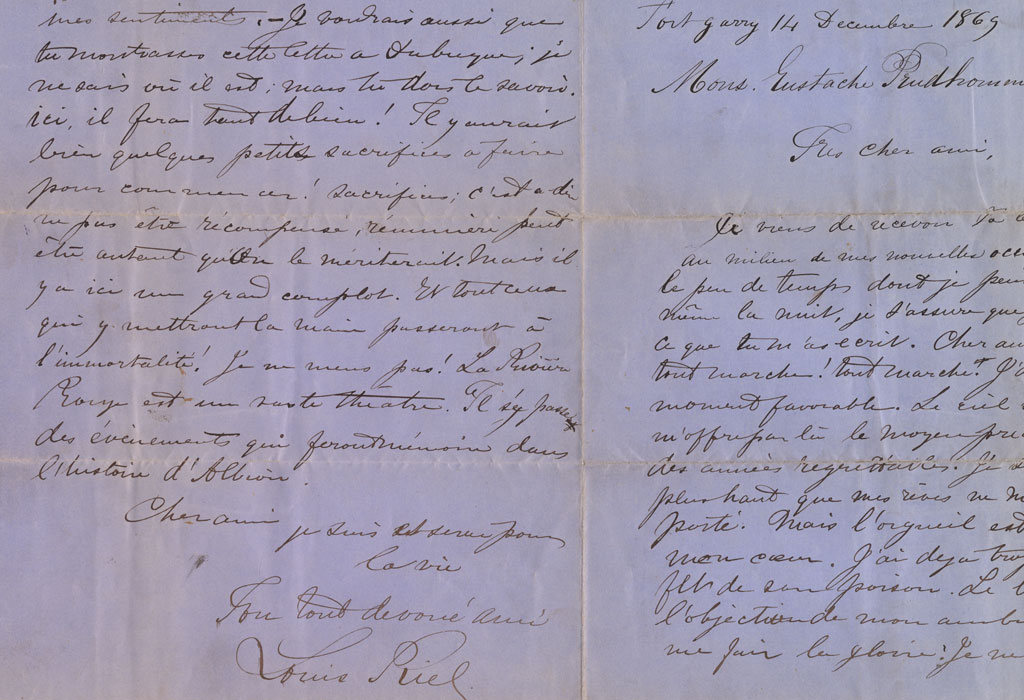 mes sentiments. — Je voudrais aussi que
tu montrasses cette lettre a Dubuque; je
ne sais où il est; mais tu dois le savoir.
ici, il fera tant de bien! Il y aurait
bien quelques petits sacrifices a faire
pour commencer! sacrifices; c'est a dire
ne pas être récompensé, rémunéré peut
être autant qu'on le mériterait. Mais il
y a ici un grand complot. Et tout ceux
qui y mettront la main passeront à
l'immortalité! Je ne mens pas! La Rivière
Rouge est un vaste théatre. Il s'y passe
des événements qui feront mémoire dans
l'histoire d'Albion.
Cher ami
je suis et serai pour
la vie
Ton tout devoué ami
Louis Riel.
Fort garry 14 Decembre 1869
Mons. Eustache Prudhomm
Très cher ami,
Je viens de recevoir
au milieu de mes nouvelles occu
le peu de temps dont je peux
même la nuit, je t'assure que
ce que tu m'as écrit. Cher am
tout marche! tout marche! J'a
moment favorable. Le ciel
m'offre par là le moyen
des années regrettables. Je
plus haut que mes rêves ne m
porté. Mais l'orgueil est
mon cœur. J'ai deja
de son poison. Le
l'objection de mon amb
me fuir la gloire! Je ne